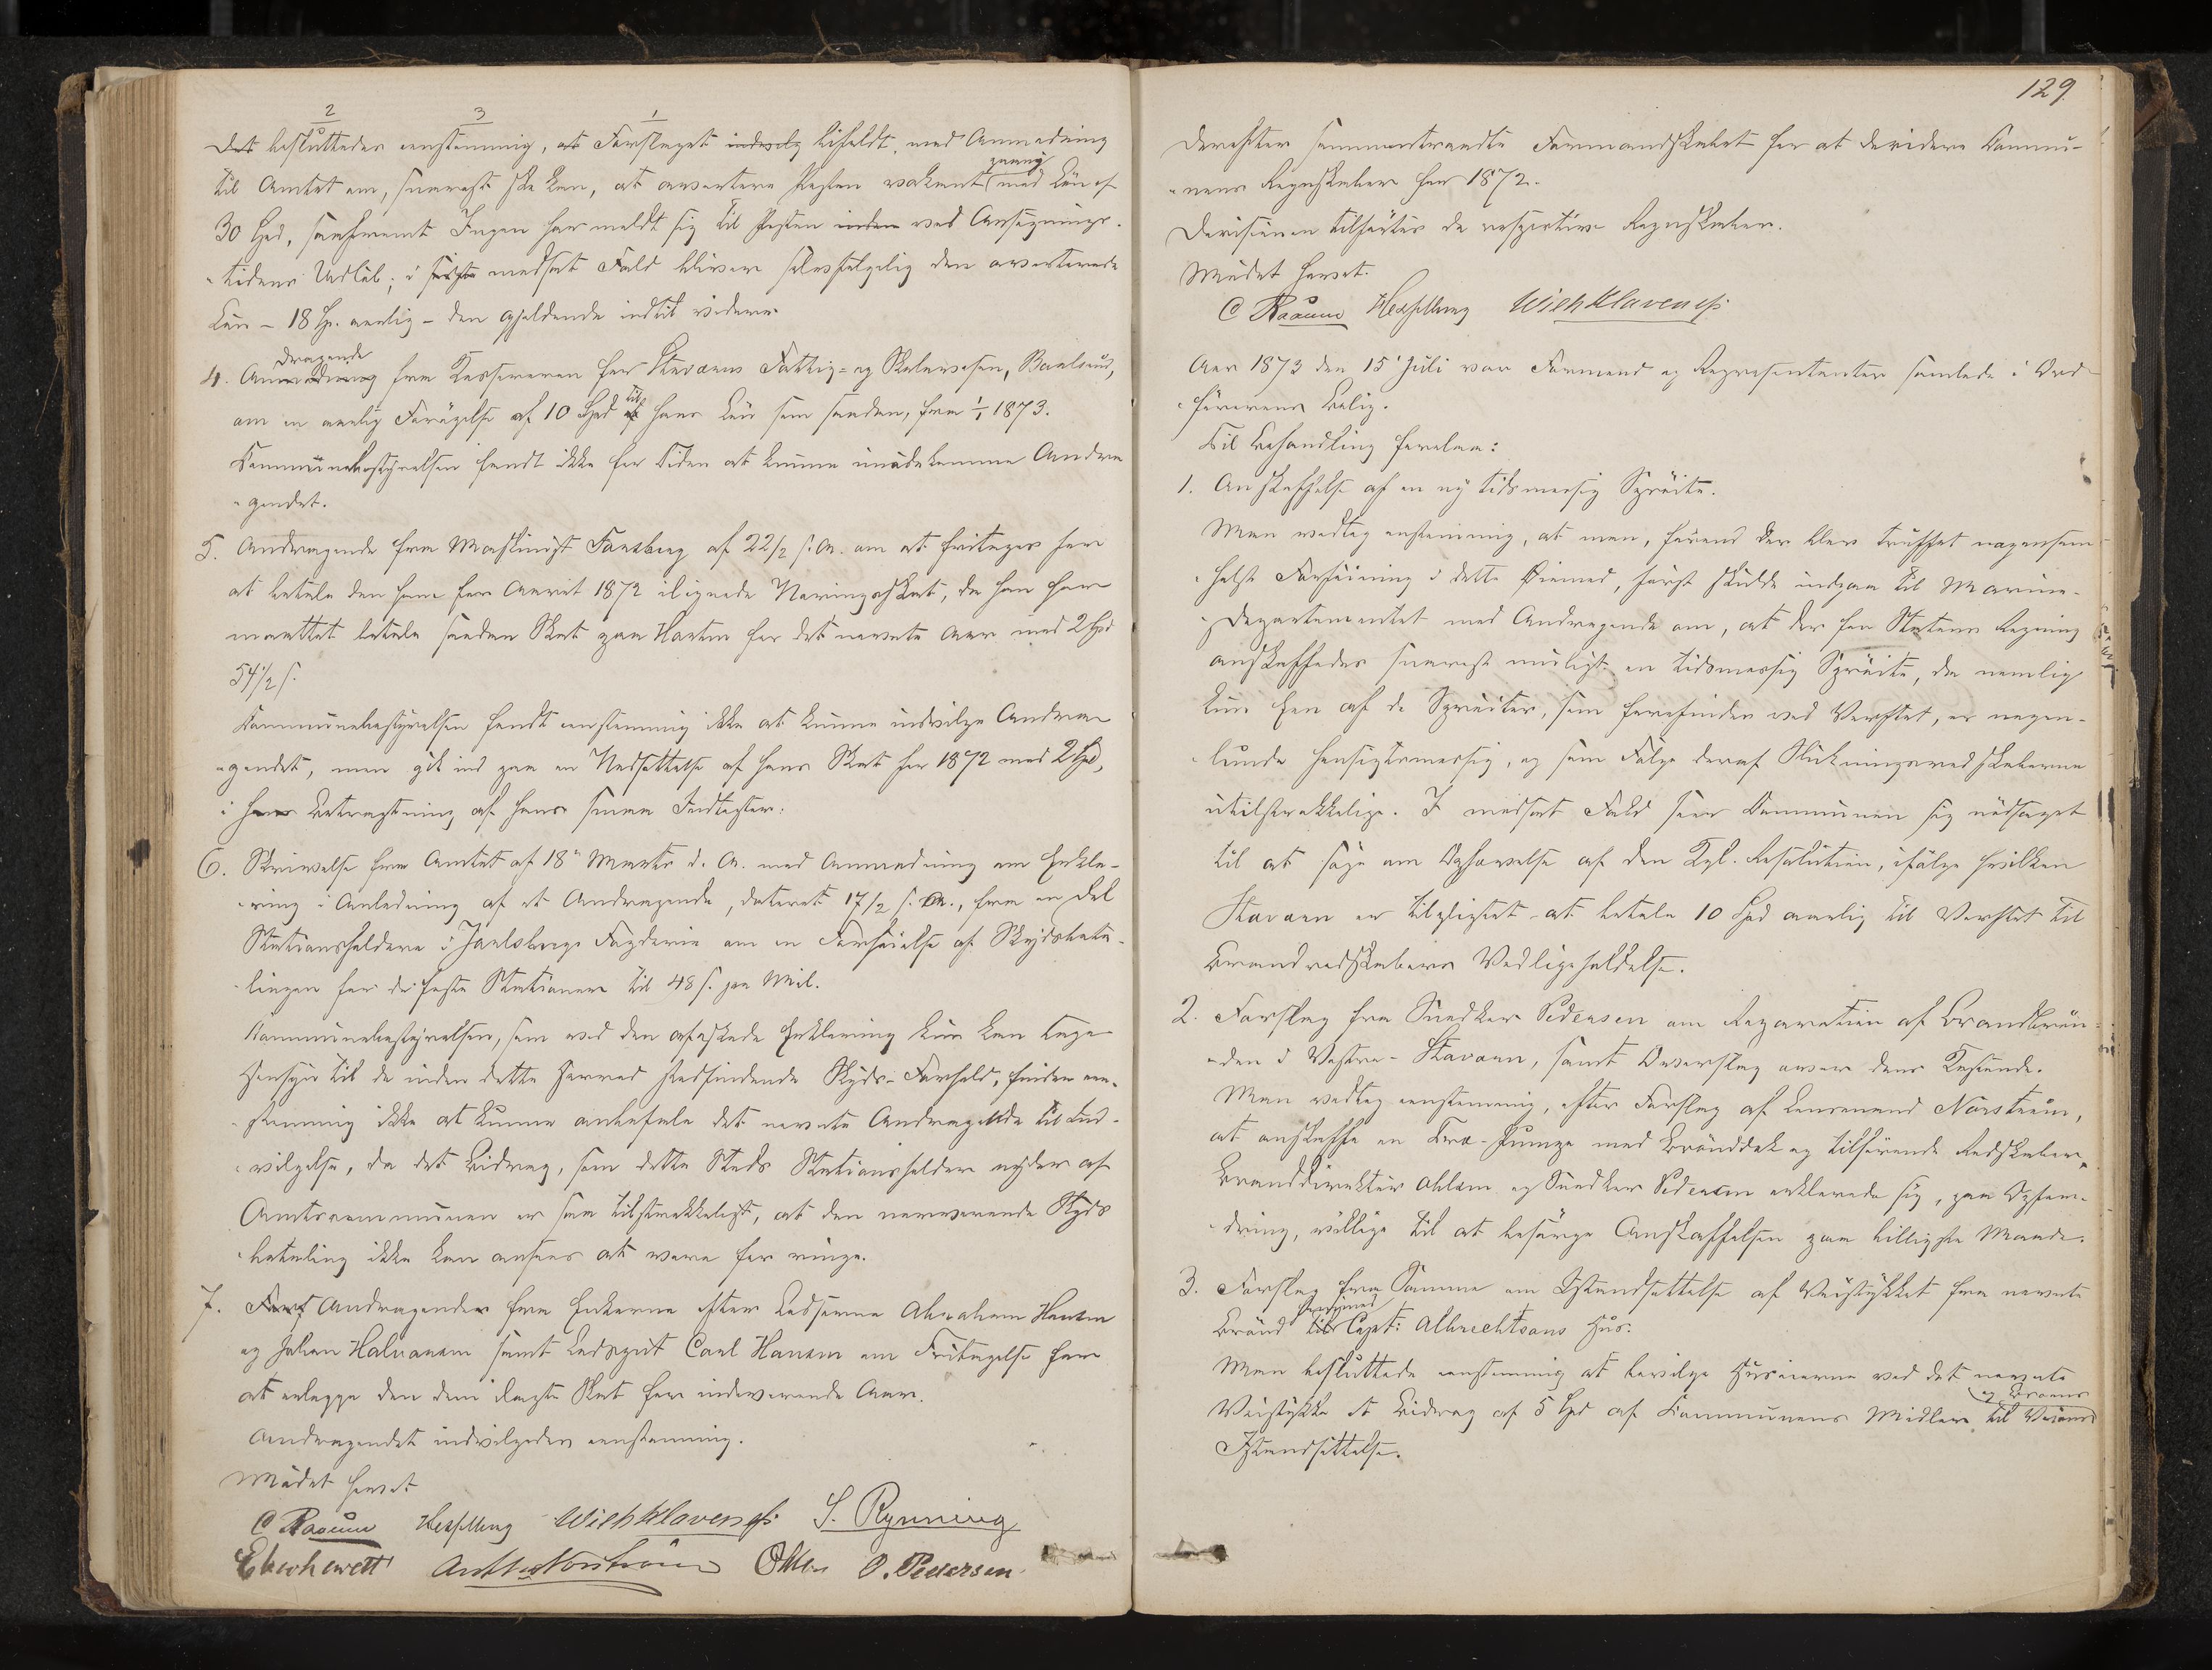 2 3 1
Det besluttedes eenstemmig, at Forslaget indvilg bifaldt, med Anmodning
til Amtet om, snarest ske kan, at avertere Posten vakant paany med Løn af
30 Spd, saafremt Ingen har meldt sig til Posten inden ved Ansøgnings-
tidens Udløb; i sidste modsat Fald bliver selvfølgelig den averterede
Løn – 18 Sp. aarlig – den gjeldende indtil videre.
4. Andragende fra Kassereren for Staværns Fattig- og Skolevesen,
om en aarlig Forøgelse af 10 Spd til hans Løn som saadan, fra 1/1 1873.
Kommunebestyrelsen fandt ikke for Tiden at kunne imødekomme Andra
gendet.
5. Andragende fra Maskinist Fansberg af 22/2 s. A. om at fritages for
at betale den ham for Aaret 1872 ilignede Næringsskat, da han har
maattet betale saadan Skat paa Horten for det nævnte Aar med 2 Spd
54 1/2 s.
Kommunebestyrelsen fandt eenstemmig ikke at kunne indvilge Andra
gendet, men gik ind paa en Nedsættelse af hans Skat for 1872 med 2 Spd,
i hans Betragtning af hans smaa Indtægter.
6. Skrivelse fra Amtet af 18de Marts d. A. med Anmodning om Erklæ-
ring i Anledning af et Andragende, dateret 17/2 s. A., fra en Del
Stationsholdere i Jarlsbergs Fogderie om en Forhøielse af Skydsbeta-
lingen for de faste Stationer til 48 s. pr Mil.
Kommunebestyrelsen, som ved den afæskede Erklæring kun kan tage
Hensyn til de inden dette Herred stedfindende Skyds-Forhold, finder een-
stemmig ikke at kunne anbefale det nævnte Andragende til Ind-
vilgelse, da det Bidrag, som dette Steds Stationsholder nyder af
Amtscommunen er saa tilstrækkeligt, at den nærværende Skyds
betaling ikke kan ansees at være for ringe.
7. Andragender fra Enkerne efter Lodserne Abraham Hansen
og Johan Halvorsen samt Lodsgut Carl Hansen om Fritagelse for
at erlægge den dem ilagte Skat for indeværende Aar.
Andragendet indvilgedes eenstemmig.
Mødet hævet
C Raaum Hesselberg Wilh Klavenes S. Rynning
Eberhewett Nordstrøm Ohlsen O. Pedersen
129.
Derefter sammentraadte Formandskabet for at decidere Kommu-
nens Regnskaber for 1872.
Decisionen tilførtes de respective Regnskaber.
Mødet hævet.
C Raaum Hesselberg Wilh Klavenes
Aar 1873 den 15de Juli var Formænd og Repræsentanter samlede i Ord
førerens Bolig.
Til Behandling forelaa:
1. Anskaffelse af en ny tidsmæssig Sprøite.
Man vedtog enstemmig, at man, førend der blev truffet nogensom
helst Forføining i dette Øiemed, først skulde indgaa til Marine-
Departementet med Andragende om, at der for Statens Regning
anskaffedes snarest muligt en tidsmæssig Sprøite, da nemlig
kun Een af de Sprøiter, som forefindes ved Værftet, er nogen-
lunde hensigtsmæssig, og som Følge deraf Slukningsredskaberne
utilstrækkelige. I modsat Fald seer Kommunen sig nødsaget
til at søge om Ophævelse af den Kgl. Resolution, ifølge hvilken
Staværn er tilpligtet at betale 10 Spd aarlig til Værftet til
Brandredskabers Vedligeholdelse.
2. Forslag fra Snedker Pedersen om Reparation af Brandbrøn
den i Vestre-Staværn, samt Overslag over dens Kostende.
Man vedtog eenstemmig, efter Forslag af Lensmand Norstrøm,
at anskaffe en Træ-Pumpe med Brønddæk og tilhørende Redskaber.
Branddirektør Ohlsen og Snedker Pedersen erklærede sig, paa Opfor-
dring, villige til at besørge Anskaffelsen paa billigste Maade.
3. Forslag fra Samme om Istandsættelse af Veistykket fra nævnte
Brønd til Capt: Albrechtsons Hus.
Man besluttede eenstemmig at bevilge Huseierne ved det nævnte
Veistykke et Bidrag af 5 Spd af Kommunens Midler til Veiens og Broens
Istandsættelse.